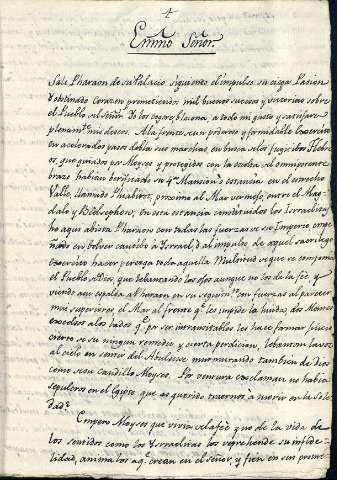 1
Emmo Señor.
Sale Pharaon de su Palacio siguiendo el impulso su ciega Pasion
y obstinado Corazon prometiendose mil buenos sucesos y victorias sobre
el Pueblo el Señor. Yo los cogere, blasona, a todo mi gusto y satisfare
plenamte mis deseos. Alla frente un poderoso y formidable Exercito
en acelerados pasos dobla sus marchas, en busca de los fugitibos Hebre
os, que guiados por Moyses y protegidos con la escolta el omnipotente
brazo habian berificado su Mansion y estancia en el estrecho
Valle, llamado Phiahirot, proximo al Mar vermejo, entre el Mag-
dalo y Beelsephon, en esta estancia constituidos los Israelitas,
he aqui abista Pharaon con todas las fuerzas de su Imperio empe
ñado en bolver cautibo a Ysrael, o al impulso de aquel sacrilego
Exercito hacer perezca toda aquella Multitud de que se componia
el Pueblo de Dios, que lebantando los ojos aunque no los de la fee, y
viendo aun espalda a Pharaon en su seguimto con fuerzas al parecer
mui superiores, el Mar al frente qe les impide la huida, dos Montes
excelsos a los lados qe por ser intransitables les hace formar juicio
cierto de su ningun remedio y cierta perdicion, lebantan la voz
al cielo en señal del Abulense murmurando tambien de Dios
como de su Caudillo Moyses. Por ventura exclaman no habia
sepulcros en el Egipto que as querido traernos a morir en la Sole
dad?
Empero Moyses que vivia de la fe y no de la vida de
los sentidos como los Ysraelitas los reprehende su infide-
lidad, anima los a qe crean en el Señor, y fien en sus prome-